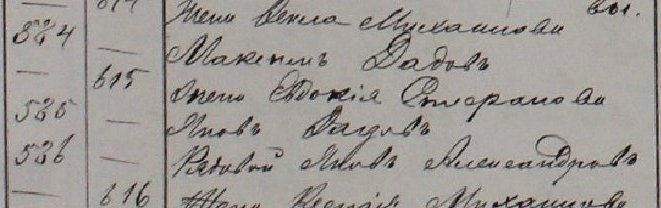 614 Жена Фекла Михайлова вы.
584 — Максимъ Дадовъ
— 615 Жена Евдокія Степанова
585 — Яковъ Дадовъ
586 — Рядовой Яковъ Александровъ
— 616 Жена Ксенія Михайлова